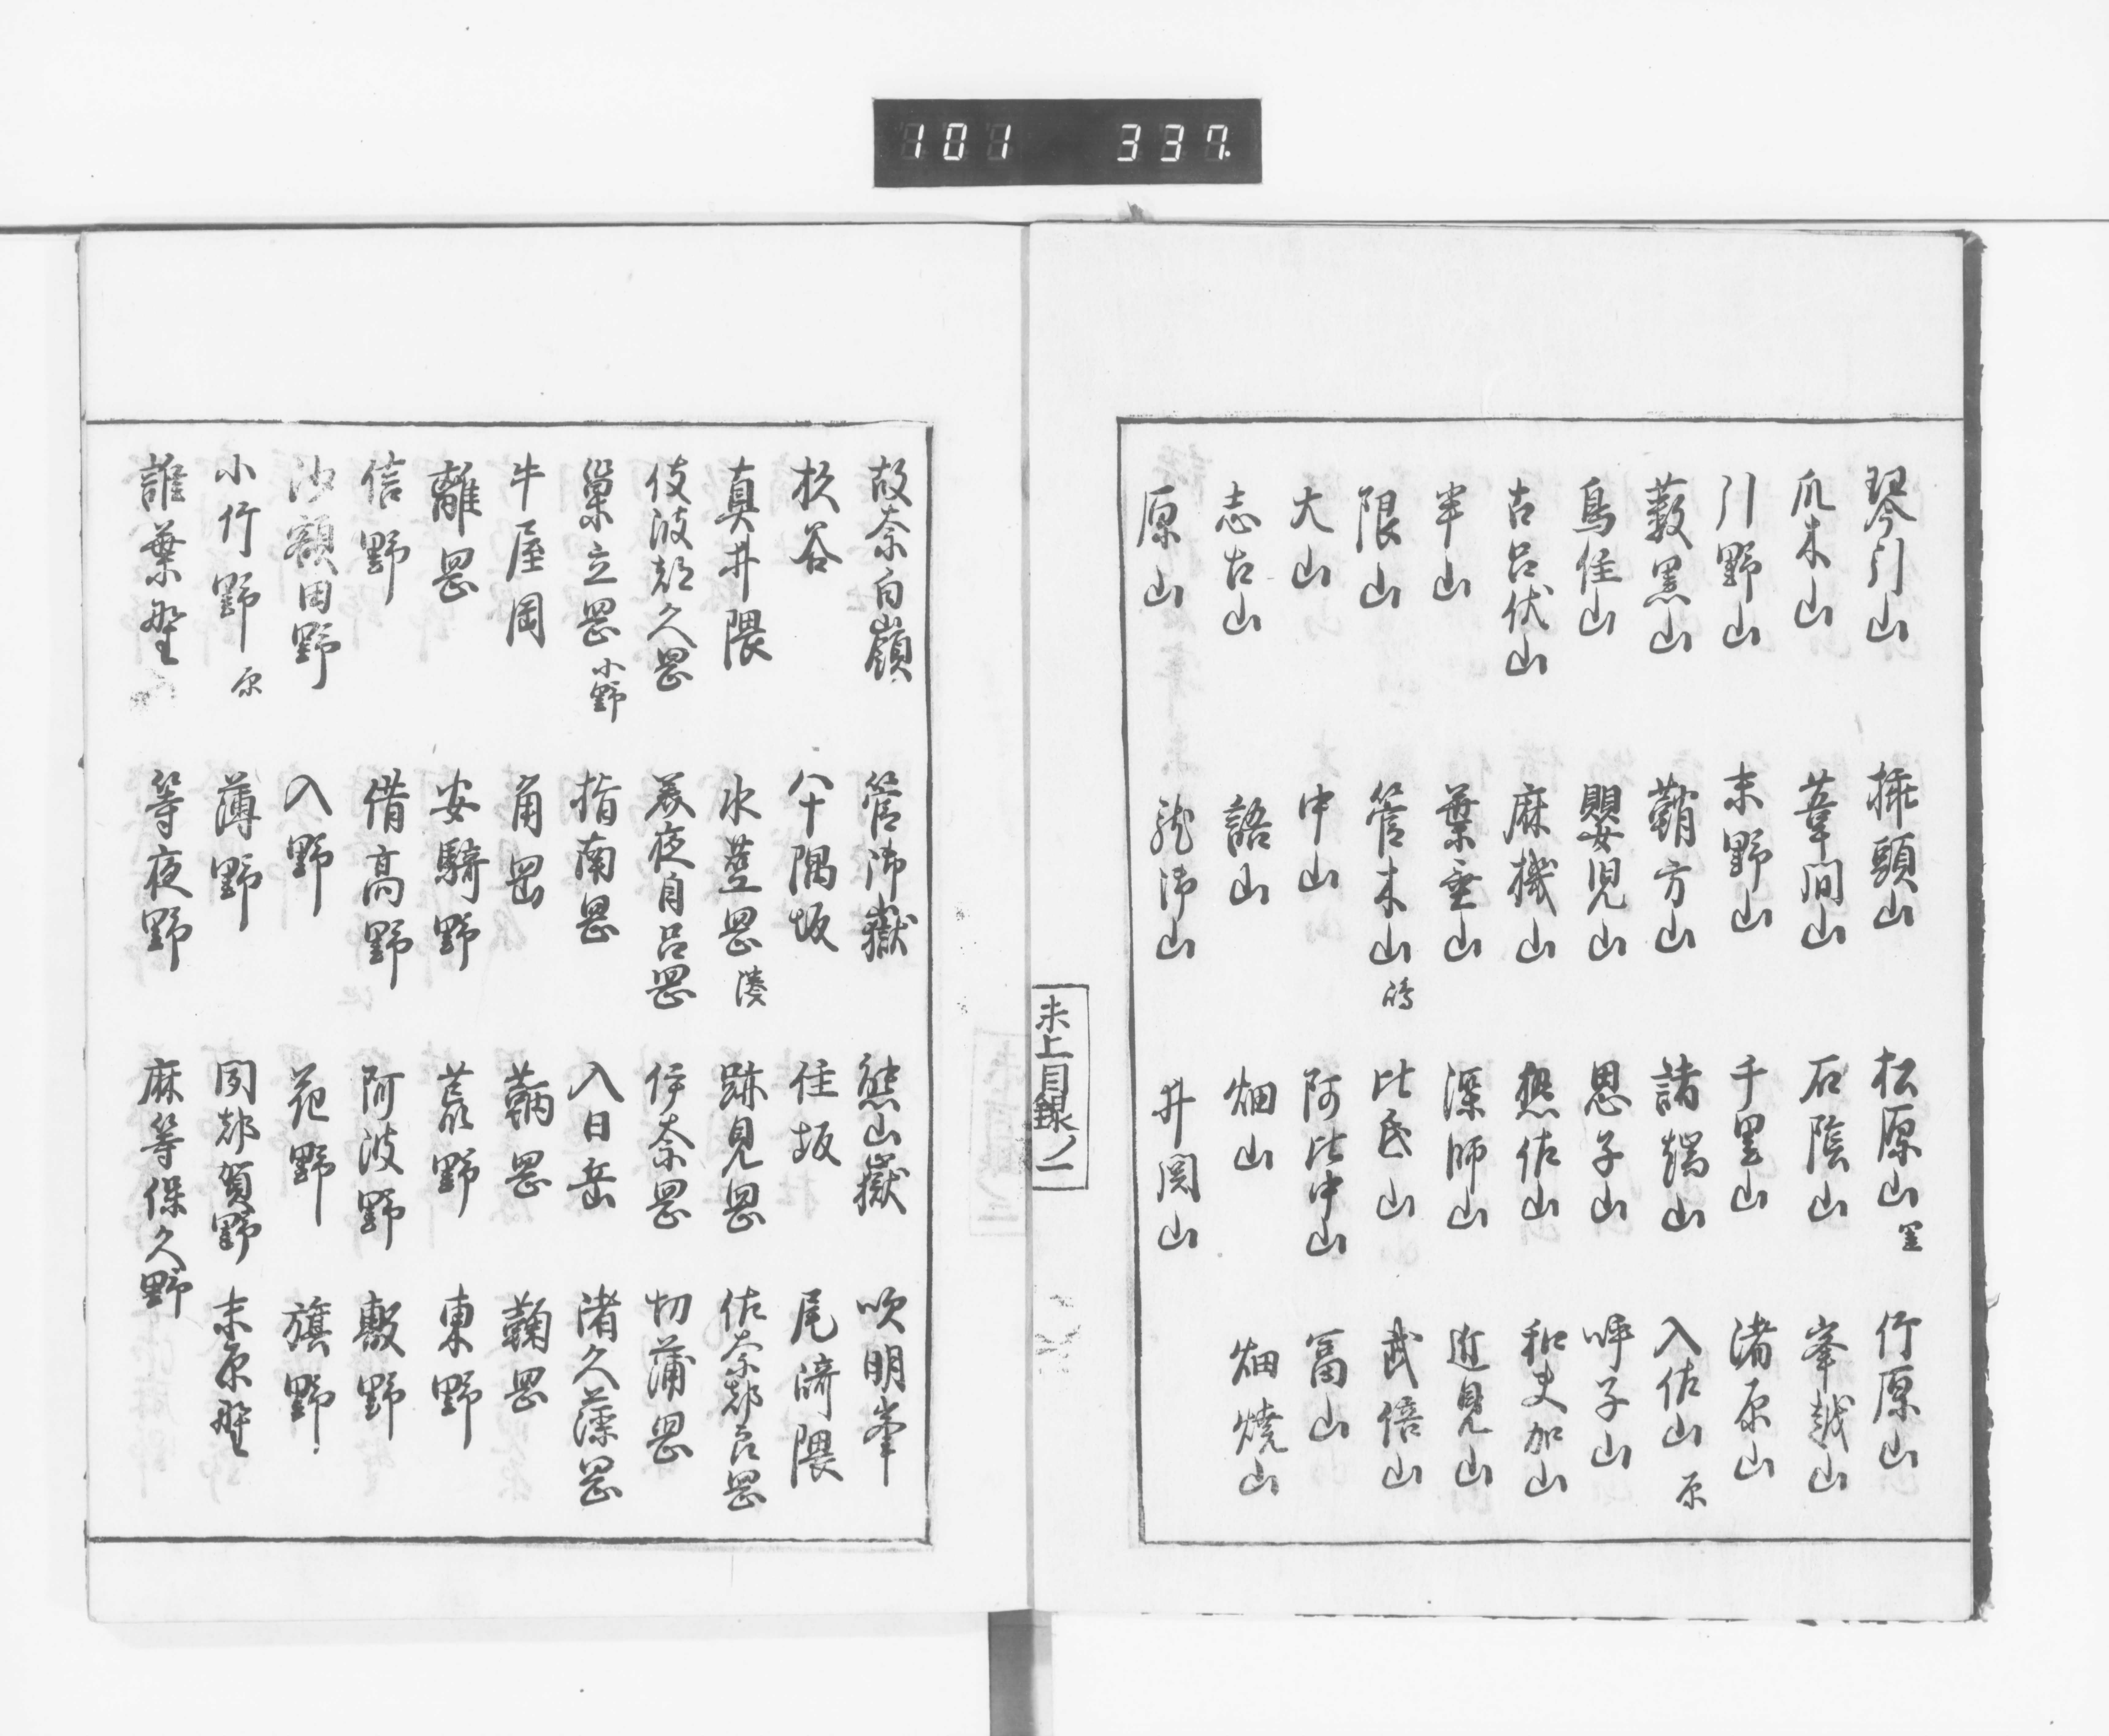 101 337
琴引山 挿頭山 松原山里 竹原山
爪木山 葦間山 石陰山 峯越山
引野山 末野山 千里山 渚原山
藪黒山 鞆方山 諸端山 入佐山原
鳥住山 嬰児山 思子山 呼子山
古呂伏山 麻機山 熊佐山 和史加山
半山 葉垂山 深師山 近見山
隈山 管木山嶋 比民山 武倍山
大山 中山 阿比中山 冨山
志古山 語山 畑山 畑焼山
原山 滝御山 井関山
未上目録ノ一
故奈白嶺 管御嶽 熊山嶽 吹明峯
杉谷 八十隅坂 住坂 尾崎隈
真井隈 水茎岡湊 跡見岡 佐奈都良岡
伎波都久岡 美夜自呂岡 伊奈岡 切蒲岡
巣立岡小野 指南岡 入日岳 渚久藻岡
牛屋岡 角岡 鞆岡 鞠岡
離岡 安騎野 荒野 東野
信野 借高野 阿波野 敷野
沙額田野 入野 苑野 旗野
小竹野原 薄野 菟賀野 末原野
誰葉野 等夜野 麻等保久野